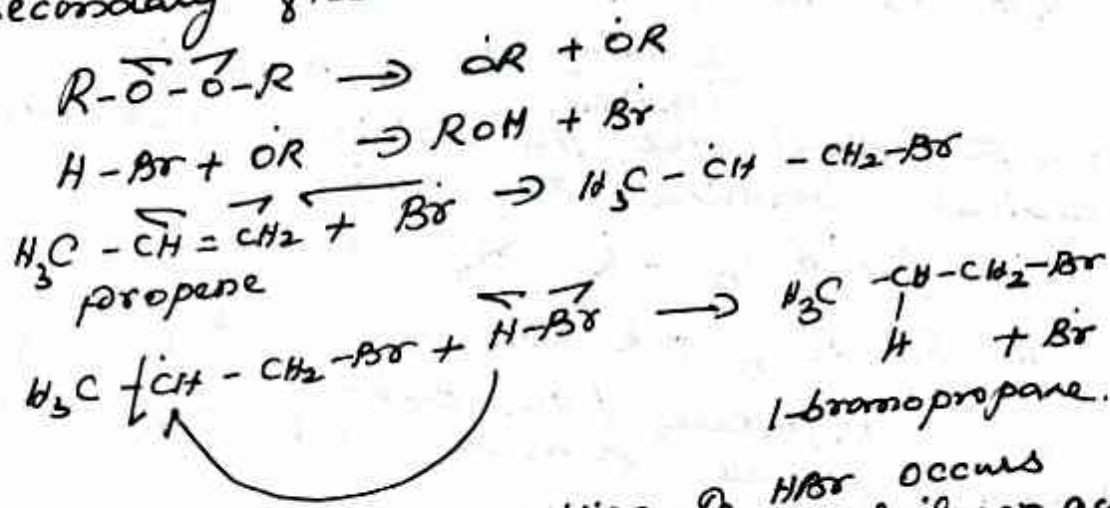 secondary
R-O-O-R → ȮR + ȮR
H-Br + ȮR → ROH + Ḃr
H₃C - CH = CH₂ + Ḃr → H₃C - ĊH - CH₂-Br
propene
H₃C - ĊH - CH₂-Br + H-Br → H₃C - CH-CH₂-Br
|
H + Ḃr
1-bromopropane.
HBr occurs